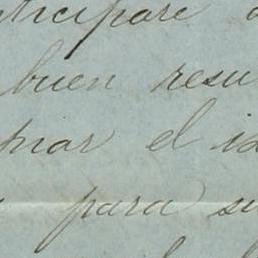 nticipare
buen resu
mar el id
para su